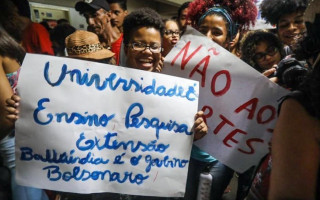 Universidade é
Ensino, Pesquisa
Extensão
Balbúrdia é o governo
Bolsonaro
NÃO AO
RTES